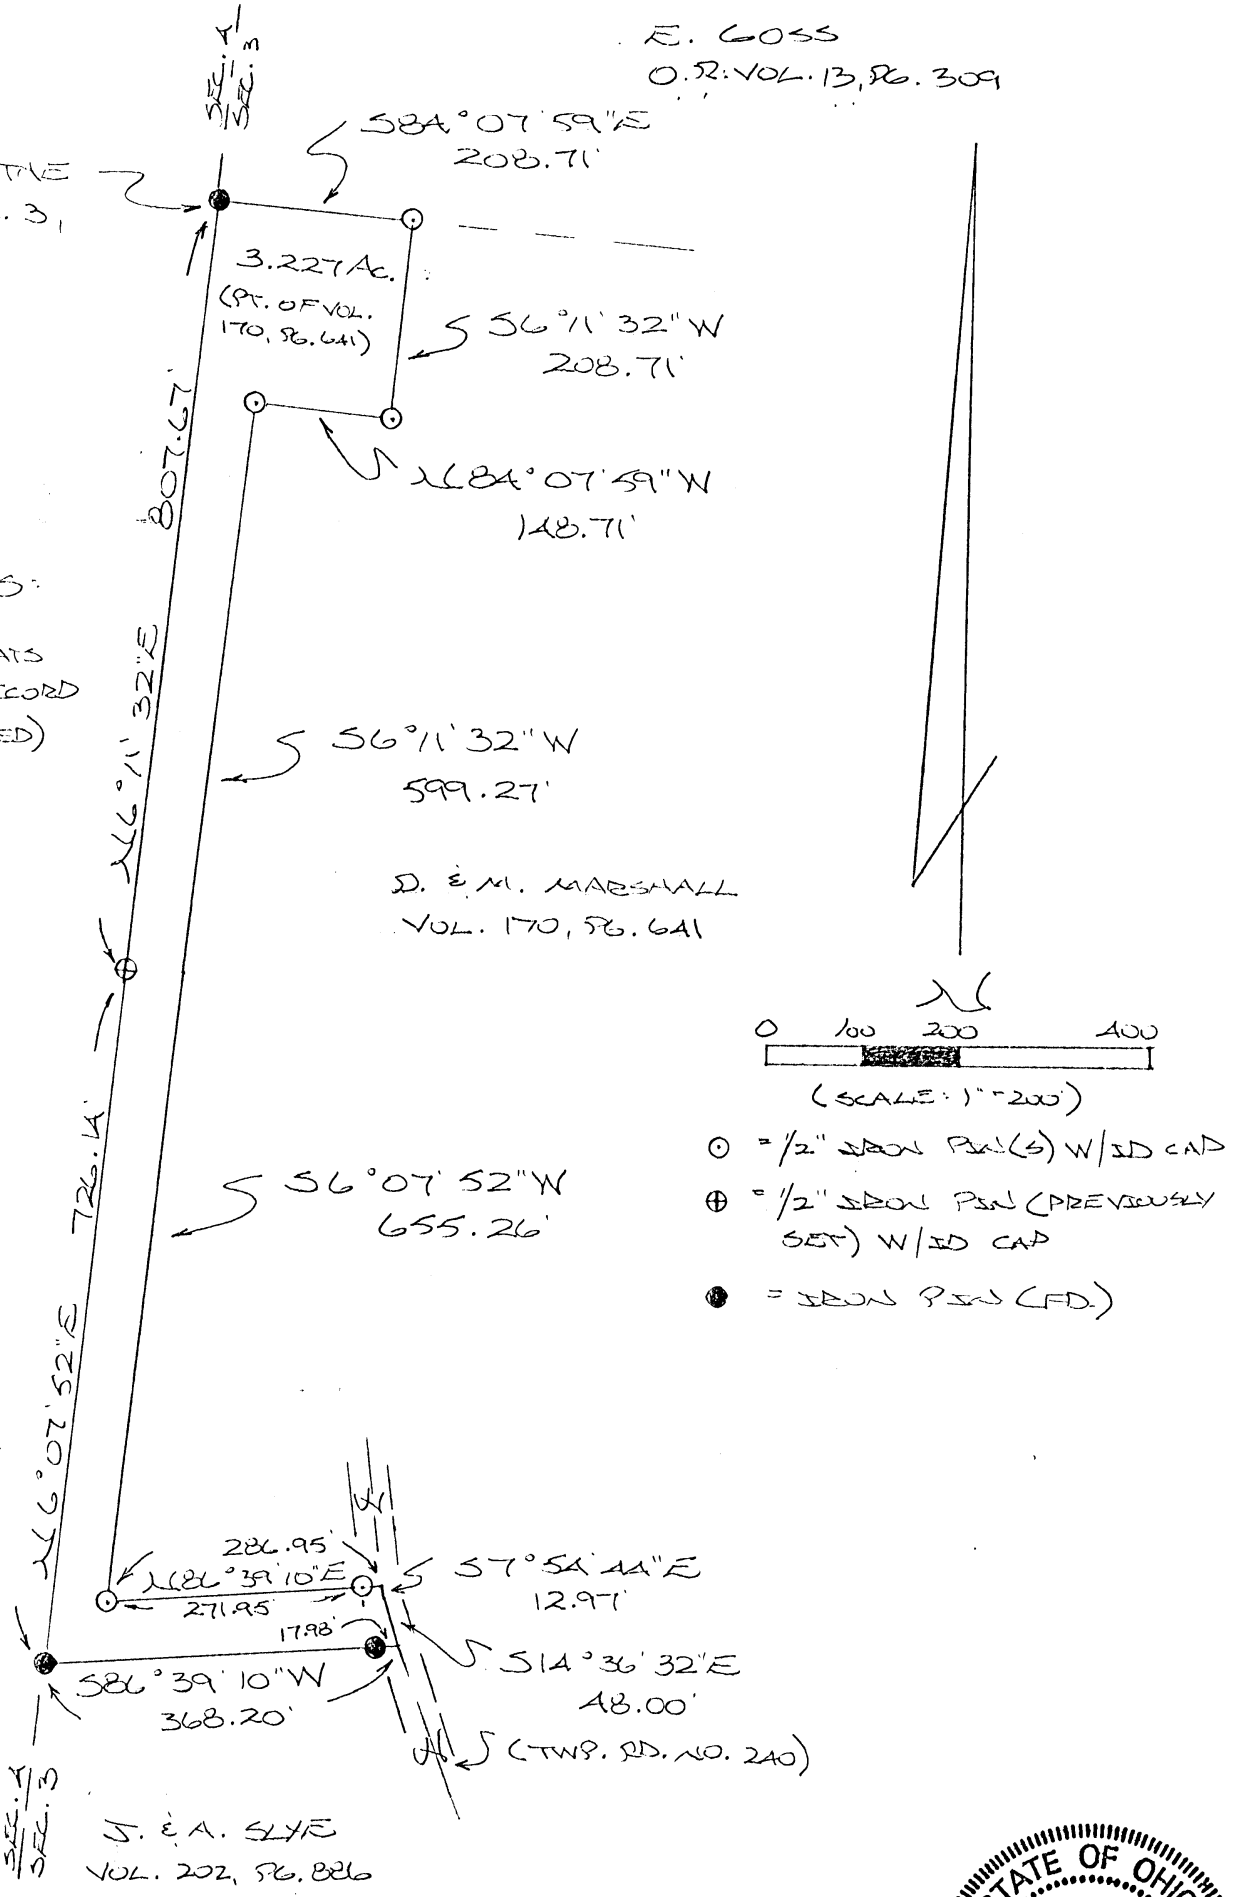 SEC. 4
SEC. 3
E. GOSS
O.R. VOL. 13, PG. 309
S84°07'59"E
208.71'
. 3,
3.227 Ac.
(PT. OF VOL.
170, PG. 641)
S6°11'32"W
208.71'
N84°07'59"W
148.71'
807.67'
N6°11'32"E
S:
ATS
ECORD
ED)
S6°11'32"W
599.27'
D. & M. MARSHALL
VOL. 170, PG. 641
N
0 100 200 400
(SCALE: 1"=200')
= 1/2" IRON PIN(S) W/ID CAP
= 1/2" IRON PIN (PREVIOUSLY
SET) W/ID CAP
= IRON PIN (FD.)
726.14'
N6°07'52"E
S6°07'52"W
655.26'
286.95'
N86°39'10"E
271.95'
17.98'
S7°54'44"E
12.97'
S14°36'32"E
48.00'
S86°39'10"W
368.20'
(TWP. RD. NO. 240)
SEC. 4
SEC. 3
J. & A. SLYE
VOL. 202, PG. 886
STATE OF OHIO